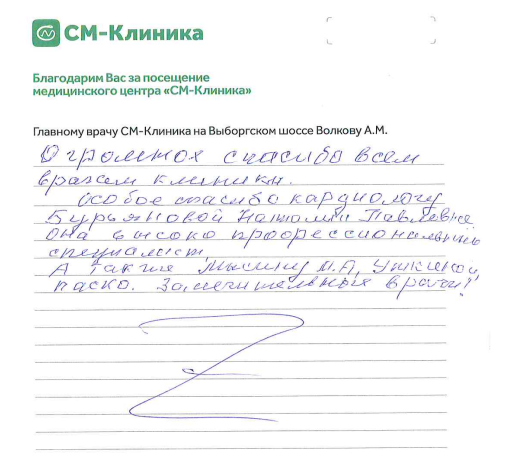 СМ-Клиника
Благодарим Вас за посещение
медицинского центра «СМ-Клиника»
Главному врачу СМ-Клиника на Выборгском шоссе Волкову А.М.
Огромное спасибо всем
врачам клиники.
Особое спасибо кардиологу
Бурьяновой Наталии Павловне
она высоко профессиональный
специалист.
А также М.А,
Замечительные врачи!